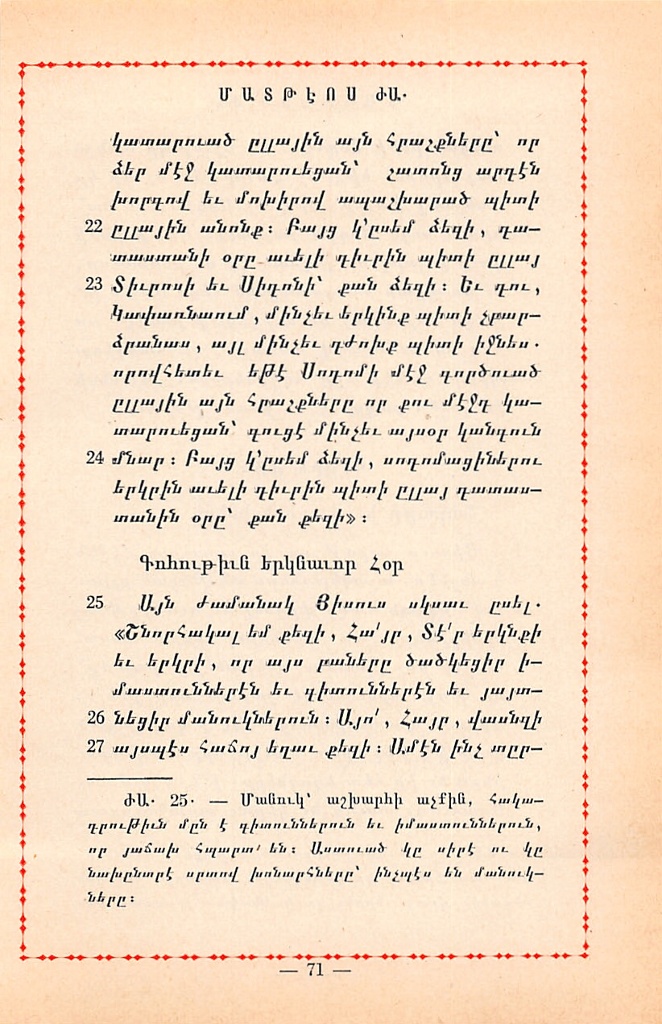 ՄԱՏԹԷՈՍ ԺԱ.
կատարուած ըլլային այն հրաշքները՝ որ
ձեր մէջ կատարուեցան՝ շատոնց արդէն
խորգով եւ մոխիրով ապաշխարած պիտի
22 ըլլային անոնք։ Բայց կ՚ըսեմ ձեզի, դա—
տաստանի օրը աւելի դիւրին պիտի ըլլայ
23 Տիւրոսի եւ Սիդոնի՝ քան ձեզի։ Եւ դու,
Կափառնաում, մինչեւ երկինք պիտի չբար—
ձրանաս, այլ մինչեւ դժոխք պիտի իջնես.
որովհետեւ եթէ Սոդոմի մէջ գործուած
ըլլային այն հրաշքները որ քու մէջդ կա—
տարուեցան՝ գուցէ մինչեւ այսօր կանգուն
24 մնար։ Բայց կ՚ըսեմ ձեզի, սոդոմացիներու
երկրին աւելի դիւրին պիտի ըլլայ դատաս—
տանին օրը՝ քան քեզի»։
Գոհութիւն երկնաւոր Հօր
25 Այն ժամանակ Յիսուս սկսաւ ըսել.
«Շնորհակալ եմ քեզի, Հա՛յր, Տէ՛ր երկնքի
եւ երկրի, որ այս բաները ծածկեցիր ի—
մաստուններէն եւ գիտուններէն եւ յայտ—
26 նեցիր մանուկներուն։ Այո՛, Հայր, վասնզի
27 այսպէս հաճոյ եղաւ քեզի։ Ամէն ինչ տըր—
ԺԱ. 25. — Մանուկ՝ աշխարհի աչքին, հակա—
դրութիւն մըն է գիտուններուն եւ իմաստուններուն,
որ յաճախ հպարտ՛ են։ Աստուած կը սիրէ ու կը
նախընտրէ սրտով խոնարհները՝ ինչպէս են մանուկ—
ները։
— 71 —